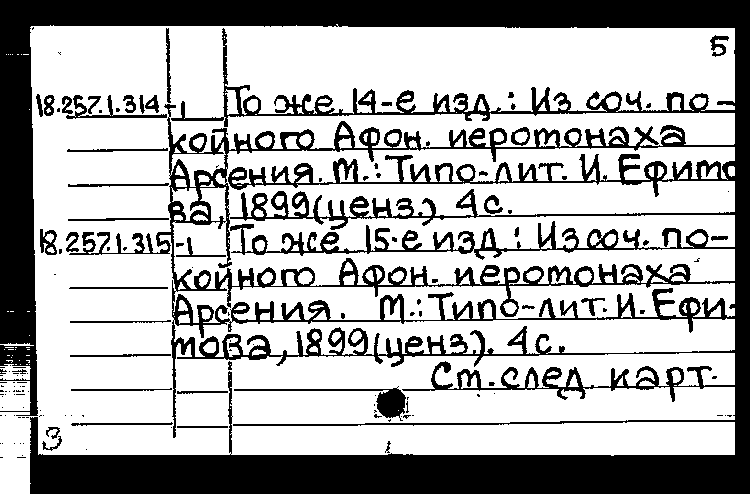 5.
18.257.1.314-1 То же. 14-е изд.: Из соч. по-
койного Афон. иеромонаха
Арсения. М.: Типо-лит. И. Ефимо
ва, 1899(ценз.). 4с.
18.257.1.315-1 То же. 15-е изд.: Из соч. по-
койного Афон. иеромонаха
Арсения. М.: Типо-лит. И. Ефи-
мова, 1899(ценз.). 4с.
См. след. карт.
3